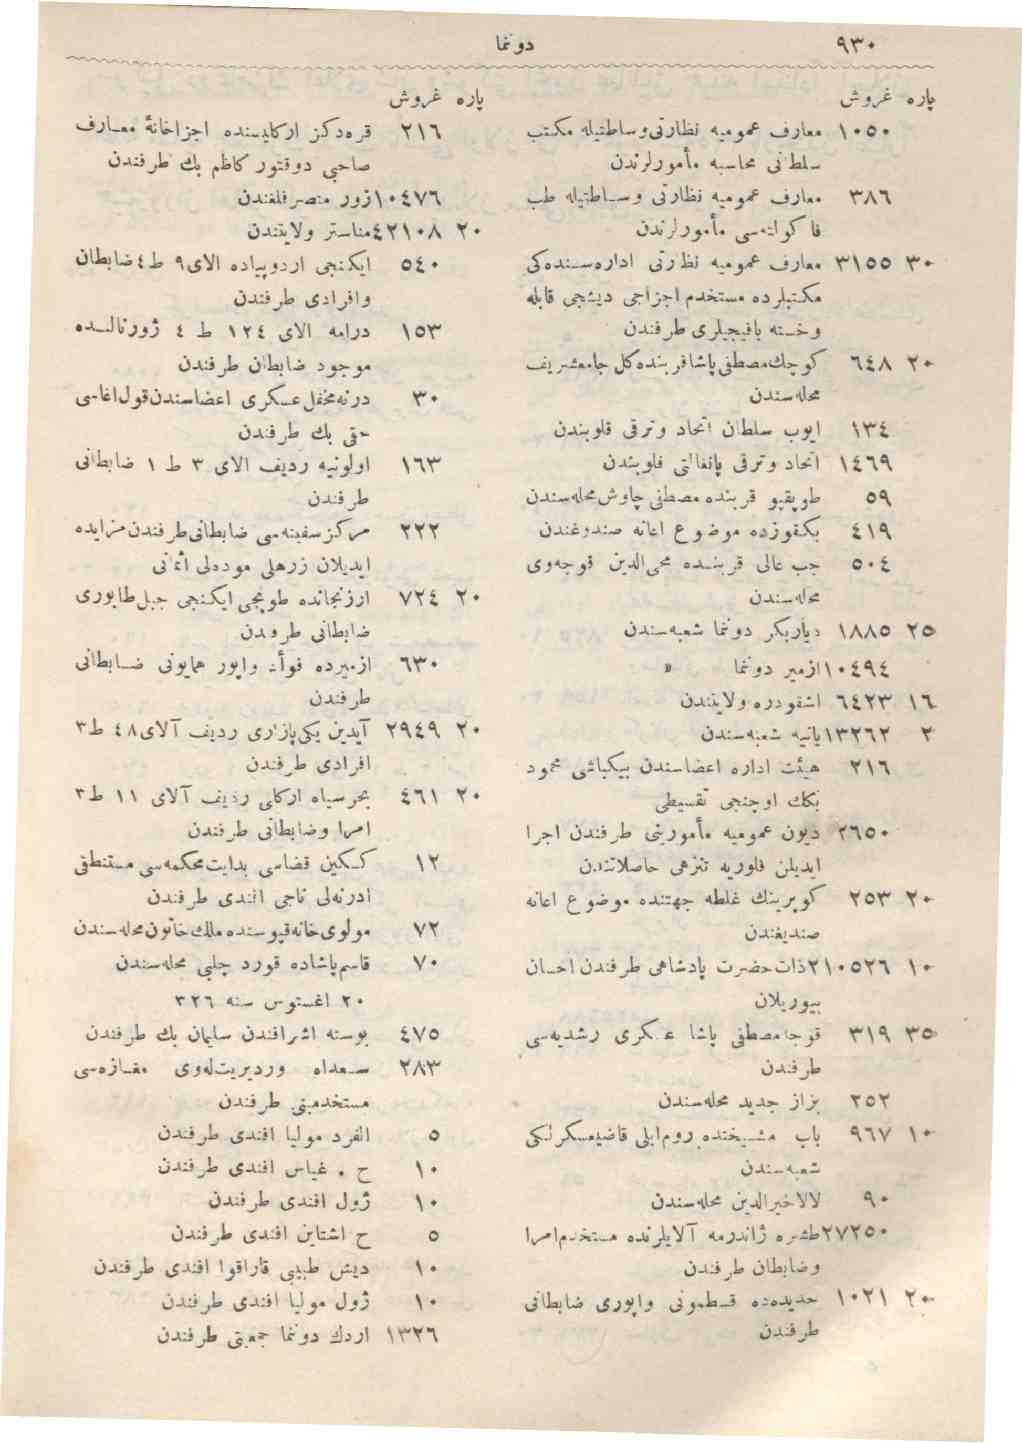 ٩٣٠
دوننما
پاره غروش
١٠٥٠ معارف عموميه نظارتى وساطتيله مكتب
سلطانى محاسبه مأمورلرندن
٣٨٦ معارف عموميه نظارتى وساطتيله طب
فاكولته‌سى مأمورلرندن
٣٠ ٣١٥٥ معارف عموميه نظارتى اداره‌سنده‌كى
مكتبلرده مستخدم اجزاجى ديشجى قابله
وخسته باقيجيلرى طرفندن
٢٠ ٦٤٨ كوچك مصطفى پاشا قربنده كل جامع شريف
محله‌سندن
١٣٤ ايوب سلطان اتحاد وترقى قلوبندن
١٤٦٩ اتحاد وترقى پانغالتى قلوبندن
٥٩ طوپقپو قربنده مصطفى چاوش محله‌سندن
٤١٩ بكقوزده موضوع اعانه صندوغندن
٥٠٤ جب عالى قربنده محى‌الدين قوجه‌وى
محله‌سندن
٢٥ ١٨٨٥ دياربكر دوننما شعبه‌سندن
١٠٤٩٤ ازمير دوننما »
١٦ ٦٤٢٣ اشقودره ولايتندن
٢ ١٣٢٦٢ يانيه شعبه‌سندن
٢١٦ هيئت اداره اعضاسندن بيكباشى محمود
بكك اوچنجى تقسيطى
٢٦٥٠ ديون عموميه مأموريتى طرفندن اجرا
ايديلن فلوريه تنزهى حاصلاتندن
٢٠ ٢٥٣ كوپرينك غلطه جهتنده موضوع اعانه
صنديغندن
١٠ ٢١٠٥٢٦ ذات حضرت پادشاهى طرفندن احسان
بيوريلان
٣٥ ٣١٩ قوجا مصطفى پاشا عسكرى رشديه‌سى
طرفندن
٢٥٢ بزاز جديد محله‌سندن
١٠ ٩٦٧ باب مشيختده روم ايلى قاضيعسكرلكى
شعبه‌سندن
٩٠ لالا خيرالدين محله‌سندن
٢٧٢٥٠ طشره ژاندرمه آلايلرنده مستخدم امرا
وضابطان طرفندن
٢٠ ١٠٢١ حديده‌ده قسطمونى واپورى ضابطانى
طرفندن
پاره غروش
٢١٦ قره‌دكز اركاديسنده اجزاخانهٔ معارف
صاحبى دوقتور كاظم بك طرفندن
١٠٤٧٦ زور متصرفلغندن
٢٠ ٤٢١٠٨ مناستر ولايتندن
٥٤٠ ايكنجى اردو پياده الاى ٩ ط ٤ ضابطان
وافرادى طرفندن
١٥٣ درامه الاى ١٢٤ ط ٤ ژورنالنده
موجود ضابطان طرفندن
٣٠ درنه محفل عسكرى اعضاسندن قول اغاسى
حقى بك طرفندن
١٦٣ اولونيه رديف الاى ٣ ط ١ ضابطانى
طرفندن
٢٢٢ مركز سفينه‌سى ضابطانى طرفندن مزايده
ايديلان زرهلى موده‌لى اثمانى
٢٠ ٧٢٤ ارزنجانده طوپجى ايكنجى جبل طابورى
ضابطانى طرفندن
٦٣٠ ازميرده فوآد واپور همايونى ضابطانى
طرفندن
٢٠ ٢٩٤٩ آيدين يكى‌پازارى رديف آلاى ٤٨ ط ٣
افرادى طرفندن
٢٠ ٤٦١ بحرسياه اركلى رديف آلاى ١١ ط ٣
امرا وضابطانى طرفندن
١٢ كسكين قضاسى بدايت محكمه‌سى مستنطقى
ادرنه‌لى ناجى افندى طرفندن
٧٢ مولوى‌خانه قپوسنده ملك خاتون محله‌سندن
٧٠ قاسم پاشاده قورد چلبى محله‌سندن
٢٠ اغستوس سنه ٣٢٦
٤٧٥ بوسنه اشرافندن سليمان بك طرفندن
٢٨٣ مغازه‌سى
مستخدمينى طرفندن
٥ الفرد موليا افندى طرفندن
١٠ ح . غياس افندى طرفندن
١٠ ژول افندى طرفندن
٥ ح اشتاين افندى طرفندن
١٠ ديش طبيبى قاراقوا افندى طرفندن
١٠ ژول موليا افندى طرفندن
١٣٢٦ اردك دوننما جمعيتى طرفندن